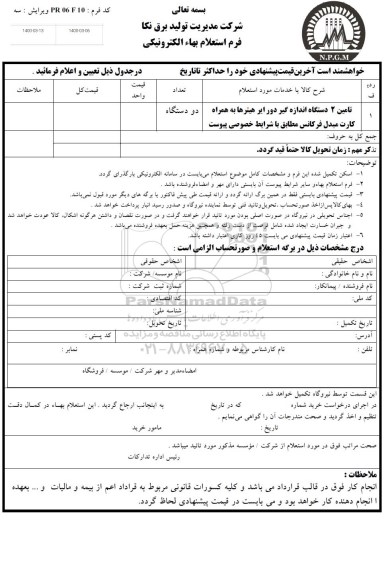 بسمه تعالی
کد فرم : PR 06 F 10 ویرایش : سه
شرکت مدیریت تولید برق نکا
فرم استعلام بهاء الکترونیکی
N.P.G.M
خواهشمند است آخرین قیمت پیشنهادی خود را حداکثر تا تاریخ درجدول ذیل تعیین و اعلام فرمائید .
ردیف شرح کالا یا خدمات مورد استعلام تعداد قیمت واحد قیمت کل ملاحظات
۱ تامین ۲ دستگاه اندازه گیر دور ایر هیترها به همراه کارت مبدل فرکانس مطابق با شرایط خصوصی پیوست دو دستگاه
جمع کل به حروف:
تذکر مهم : زمان تحویل کالا حتماً قید گردد.
توضیحات:
۱- اسکن تکمیل شده این فرم و مشخصات کامل موضوع استعلام می‌بایست در سامانه الکترونیکی بارگذاری گردد.
۲- فرم استعلام بهاء و سایر شرایط پیوست آن بایستی دارای مهر و امضاء فروشنده باشد .
۳- قیمت پیشنهادی بایستی فقط در همین برگ ارائه گردد و ارائه قیمت طی پیش فاکتور یا برگه های دیگر مورد قبول نمی‌باشد.
۴- بهای کالا پس از اخذ صورتحساب ، تحویل و تائید فنی توسط نماینده نیروگاه و صدور رسید انبار پرداخت خواهد شد .
۵- اجناس تحویلی در نیروگاه در صورت اصلی بودن مورد تائید قرار خواهند گرفت و در صورت نقصان و داشتن هرگونه اشکال، کالا عودت خواهد شد
و جبران خسارت ایجاد شده شامل فرصت از دست رفته و همچنین هزینه حمل بعهده فروشنده می‌باشد .
۶- اعتبار زمان قیمت پیشنهادی می بایست ۴۵ روز کاری اعتبار داشته باشد.
درج مشخصات ذیل در برگه استعلام و صورتحساب الزامی است :
اشخاص حقیقی اشخاص حقوقی
نام و نام خانوادگی : نام موسسه / شرکت :
نام فروشنده / پیمانکار: شماره ثبت شرکت :
کد ملی: کد اقتصادی:
شناسه ملی:
تاریخ تکمیل : تاریخ تحویل:
آدرس: کد پستی :
تلفن : نام کارشناس مربوطه و شماره همراه نمابر :
امضاء مدیر و مهر شرکت / موسسه / فروشگاه
ParsNamadData
پایگاه اطلاع رسانی مناقصه و مزایده
۰۲۱-۸۸۳۴۹۶۷۰
این قسمت توسط نیروگاه تکمیل خواهد شد .
در اجرای درخواست خرید شماره که در تاریخ به اینجانب ارجاع گردید . این استعلام بهاء در کمال دقت
تنظیم و اخذ گردید و صحت مندرجات آن را گواهی می‌نمایم .
تاریخ : مامور خرید
صحت مراتب فوق در مورد استعلام از شرکت / مؤسسه مذکور مورد تائید میباشد .
رئیس اداره تدارکات
ملاحظات :
انجام کار فوق در قالب قرارداد می باشد و کلیه کسورات قانونی مربوط به قراداد اعم از بیمه و مالیات و ... بعهده
انجام دهنده کار خواهد بود و می بایست در قیمت پیشنهادی لحاظ گردد.